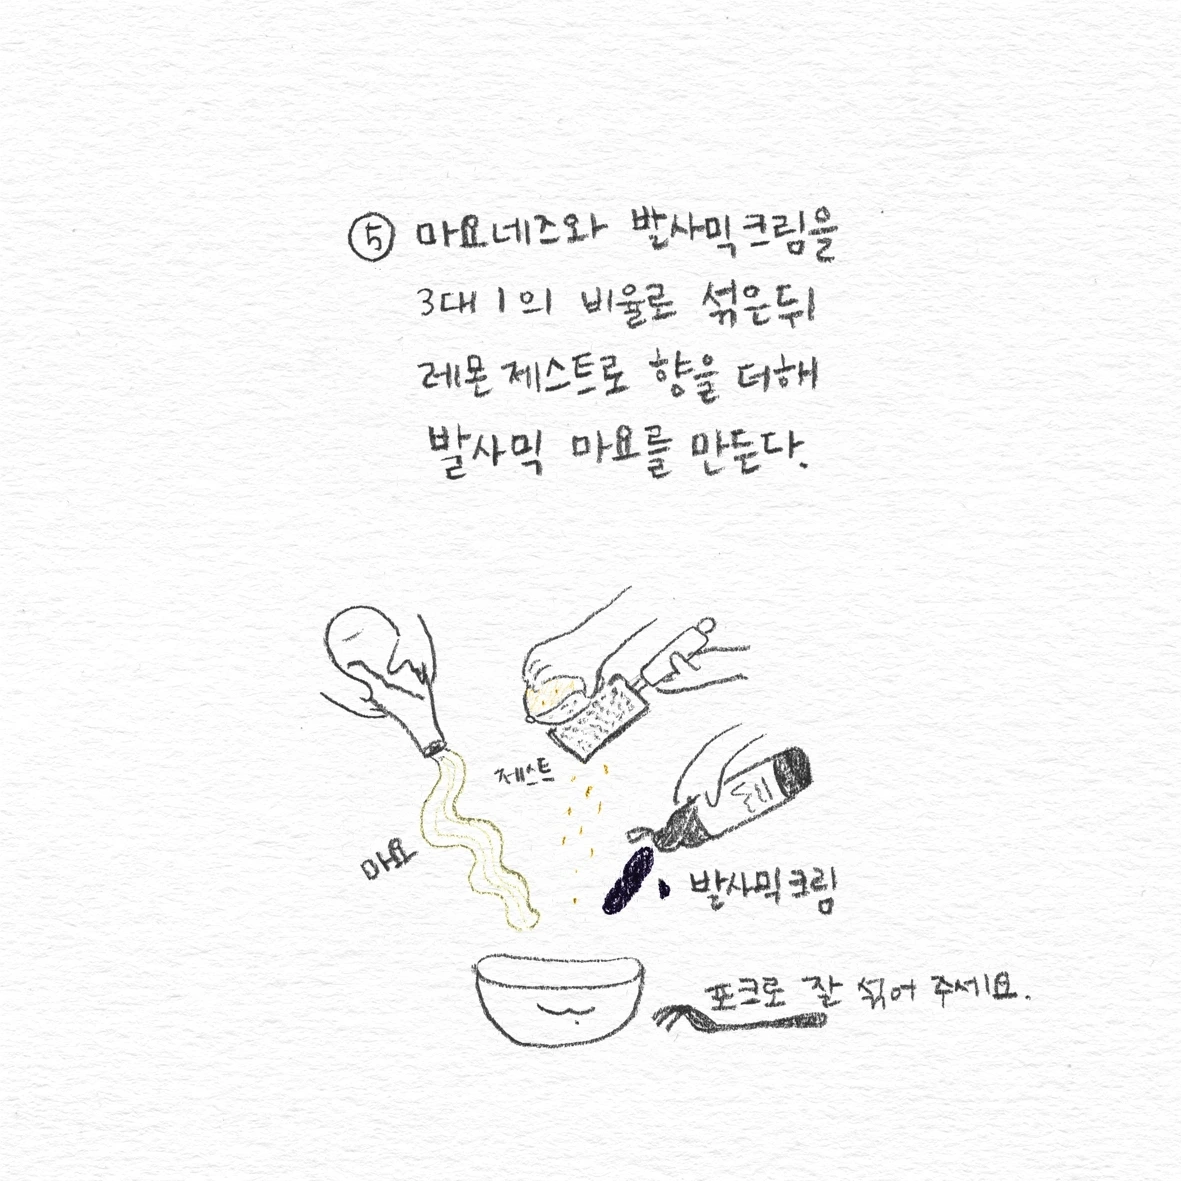 ⑤ 마요네즈와 발사믹크림을
3대 1의 비율로 섞은뒤
레몬 제스트로 향을 더해
발사믹 마요를 만든다.
제스트
마요
발사믹크림
포크로 잘 섞어 주세요.